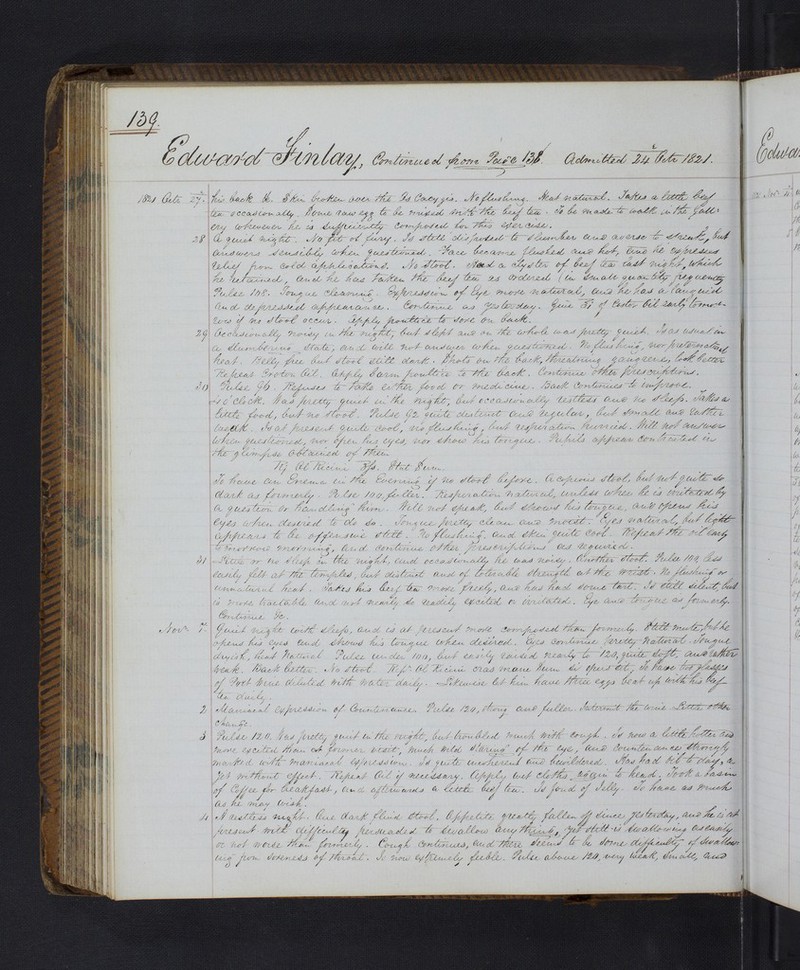 139.
Edward Finlay, Continued from Page 138. Admitted 24 Octr 1821.
1821 Octr 27. his back &c. Skin broken over the Os Coccygis. No flushing. Heat natural. Takes a little beef
tea occasionally. Some raw egg to be mixed with the beef tea. To be made to walk in the Gall-
ery whenever he is sufficiently composed for this exercise.
28 A quiet night. No fit of fury. Is still disposed to slumber and averse to drink, but
answers sensibly when questioned. Face became flushed and hot, and he expresses
relief from cold applications. No Stool. Had a Clyster of beef tea last night, which
he returned, and he has taken the beef tea as ordered (in small quantity frequently
Pulse 108. Tongue cleaning. Expression of Eye more natural, and he has a languid
and depressed appearance. Continue as yesterday. Give of Castor Oil early tomor-
row if no stool occur. Apply poultice to sore on back.
29 Occasionally noisy in the night, but slept and on the whole was pretty quiet. Is as usual in
a slumbering state, and will not answer when questioned. No flushing, nor preternatural
heat. Belly free but stool still dark. Spots on the back, threatening gangrene, look better
Repeat Croton Oil. Apply poultice to the back. Continue other prescriptions.
30 Pulse 96. Refuses to take either food or medicine. Back continues to improve.
o'clock. Was pretty quiet in the night, but occasionally restless and no sleep. Takes a
little food, but no stool. Pulse 92 quite distinct and regular, but small and rather
weak. Is at present quite cool, no flushing, but respiration hurried. Will not answer
when questioned, nor open his eyes, nor show his tongue. Pupils appear contracted in
the glimpse obtained of them.
Ol Ricini Stat Sum.
To have an Enema in the Evening if no stool before. A copious stool, but not quite so
dark as formerly. Pulse 100, fuller. Respiration natural, unless when he is irritated by
a question or handling him. Will not speak, but shows his tongue, and opens his
eyes when desired to do so. Tongue pretty clean and moist. Eyes natural, but light
appears to be offensive still. No flushing, and skin quite cool. Repeat the oil early
tomorrow morning, and continue other prescriptions as required.
31 Little or no sleep in the night, and occasionally he was noisy. Another stool. Pulse 102 less
easily felt at the temples, but distinct and of tolerable strength at the wrist. No flushing or
unnatural heat. Takes his beef tea more freely, and has had some tart. Is still silent, but
is more tractable and not nearly so readily excited or irritated. Eye and tongue as formerly.
Continue &c.
Novr 1. Quiet night with sleep, and is at present more composed than formerly. Still mute, but he
opens his eyes and shows his tongue when desired. Eyes continue pretty natural. Tongue
heat natural. Pulse under 100, but easily raised nearly to 120, quite soft, and rather
weak. Back better. No stool. Ol Ricini cras mane opus sit, To have two glasses
of Port Wine diluted with water daily. Likewise let him have three eggs beat up with his beef
tea daily.
2 Maniacal expression of Countenance. Pulse 120, strong and fuller. Intermit the wine. Little other
Change.
3 Pulse 120. Was pretty quiet in the night, but troubled much with cough. Is now a little hotter and
more excited than at former visit, much wild staring of the eye, and countenance strongly
marked with maniacal expression. Is quite incoherent and bewildered. Has had Oil to day,
yet without effect. Repeat Oil if necessary. Apply wet cloths again to head. Took a basin
of Coffee for breakfast, and afterwards a little beef tea. Is fond of Jelly. To have as much
as he may wish.
4 A restless night. One dark fluid stool. Appetite greatly fallen off since yesterday, and he is at
present with difficulty persuaded to swallow anything, yet still is swallowing as easily
or not worse than formerly. Cough continues, and there seems to be some difficulty of swallow-
ing from soreness of throat. Is now extremely feeble. Pulse above 120, very weak, small, and